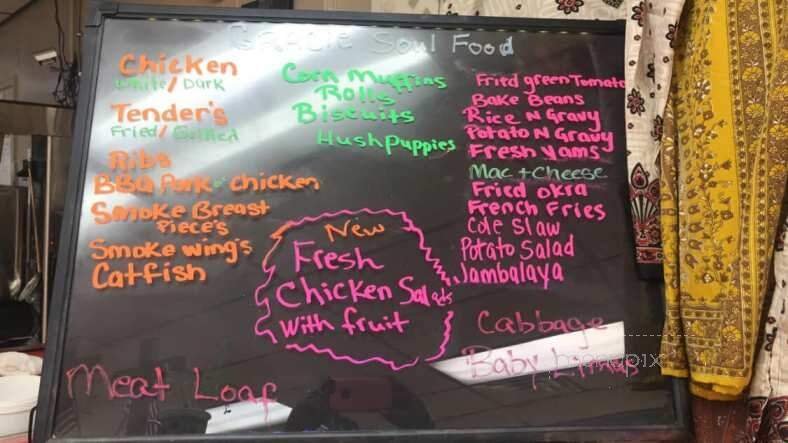 GRACIE Soul Food
Chicken
White/Dark
Tender's
Fried/Grilled
Ribs
BBQ Pork or Chicken
Smoke Breast
Piece's
Smoke wing's
Catfish
Meat Loaf
Corn Muffins
Rolls
Biscuits
Hushpuppies
New
Fresh
Chicken Salads
With fruit
Fried green Tomato
Bake Beans
Rice N Gravy
Potato N Gravy
Fresh Yams
Mac + Cheese
Fried Okra
French Fries
Cole Slaw
Potato Salad
Jambalaya
Cabbage
Baby Limas